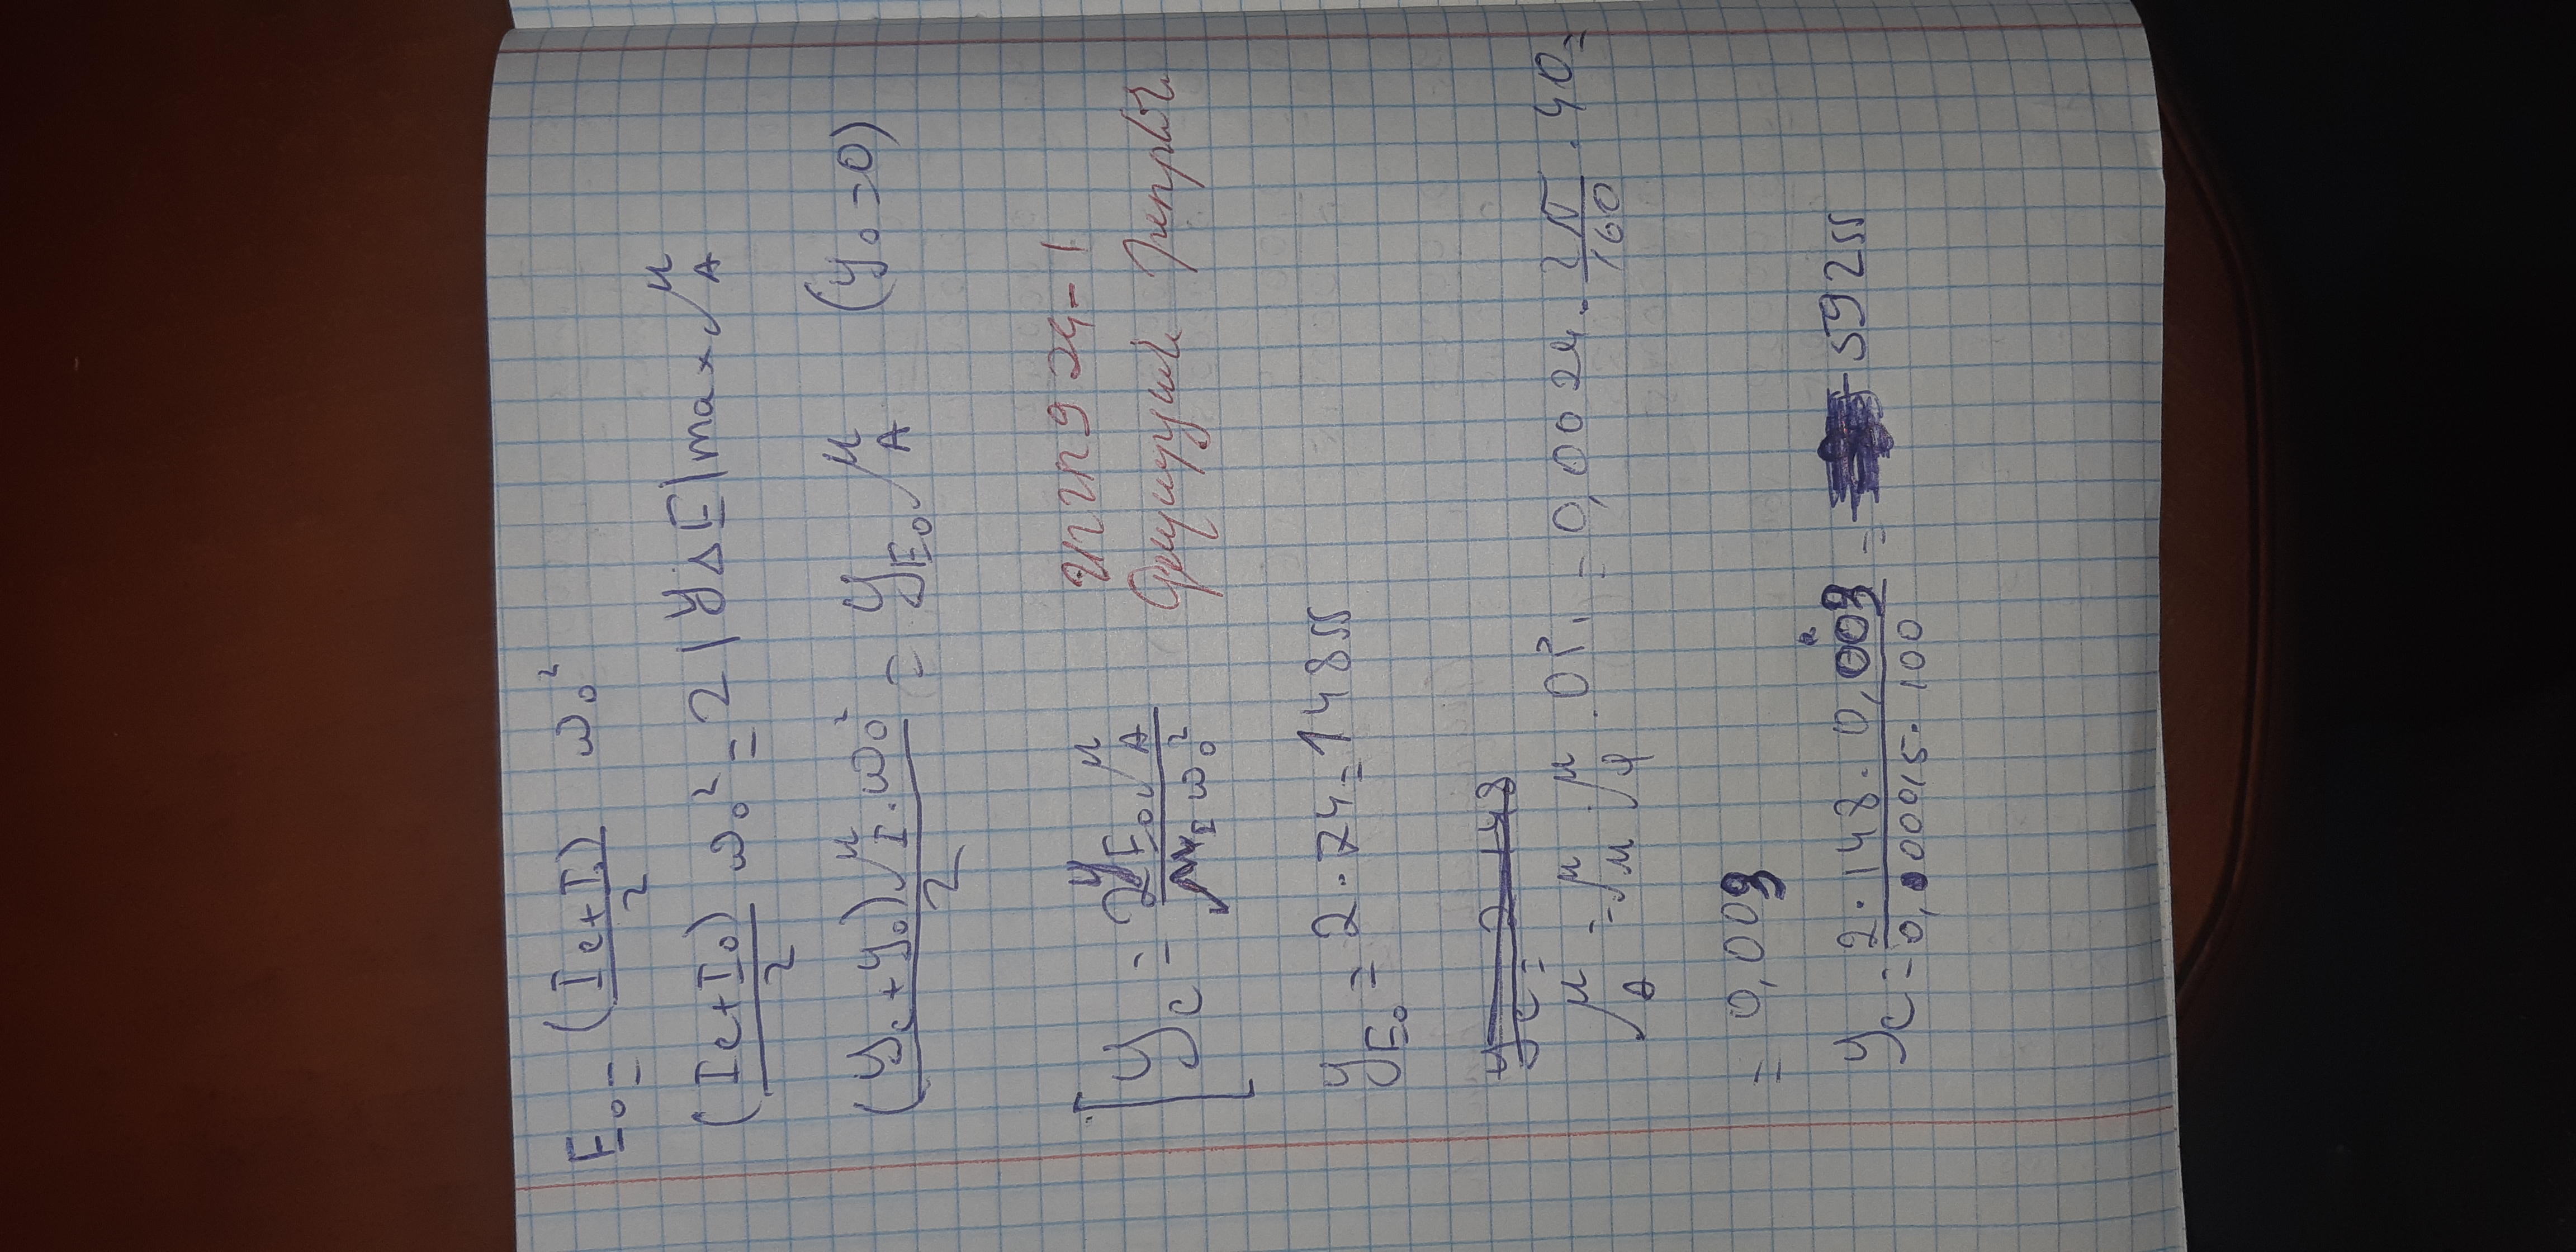 E₀ = (Ic+I₀)/2 ω₀²
(Ic+I₀)/2 ω₀² = 2|yΔE|max μA
(yc+y₀)μI·ω₀²/2 = yE₀ μA (y₀=0)
yc = 2yE₀ μA/μI ω₀²
924-1
yE₀ = 2·74 = 148
yc = 2 148
μA = μM · μφ · OP₁ = 0,0024 · 2π/160 · 40 =
= 0,003
yc = 2·148·0,003/0,000015·100 = 592